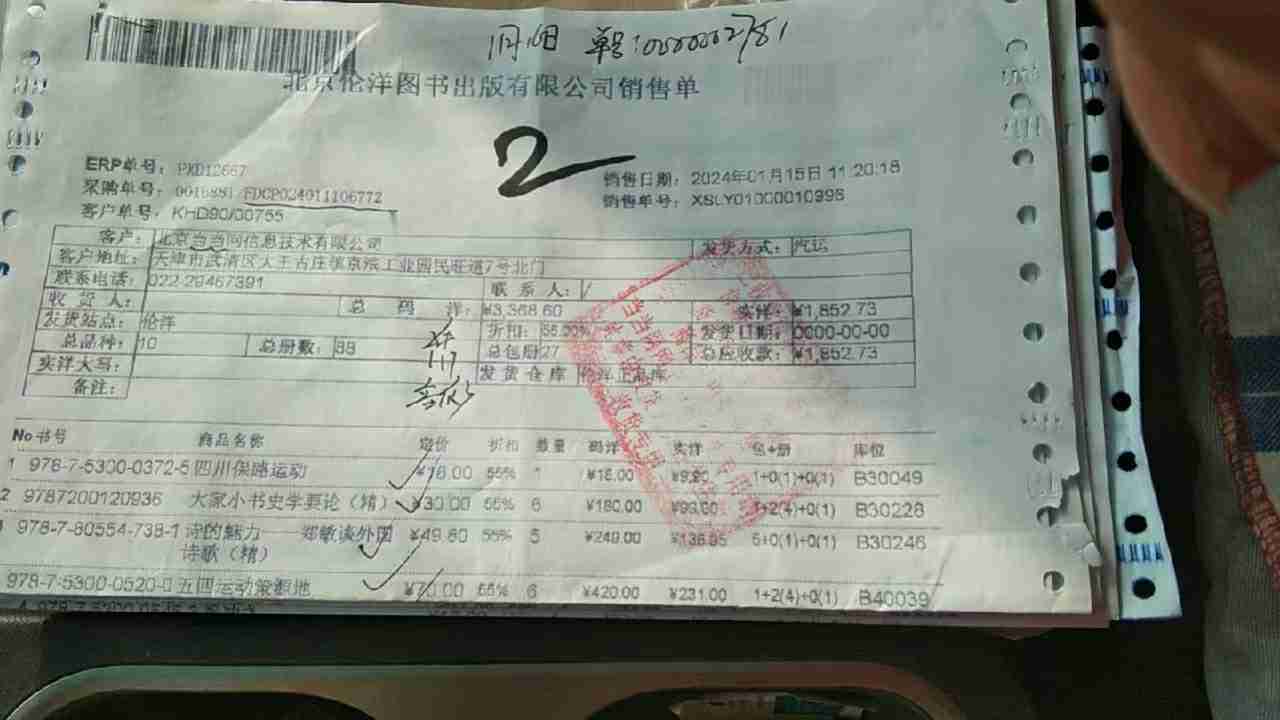 单号:0000002781
北京伦洋图书出版有限公司销售单
2
ERP单号: PKD12667
采购单号: 0016881/FDCP024011106772
客户单号: KHD90/00755
销售日期: 2024年01月15日 11:20:18
销售单号: XSLY01000010998
客户: 北京当当网信息技术有限公司 发货方式: 汽运
客户地址: 天津市武清区大王古庄镇京滨工业园民旺道7号北门
联系电话: 022-29467391 联系人: /
收货人: 总码洋: ¥3,368.60 实洋: ¥1,852.73
发货站点: 伦洋 折扣: 55.00% 发货日期: 0000-00-00
总品种: 10 总册数: 88 总包册 27 总应收款: ¥1,852.73
实洋大写: 发货仓库
备注:
No 书号 商品名称 定价 折扣 数量 码洋 实洋 包+册 库位
1 978-7-5300-0372-5 四川保路运动 ¥18.00 55% 1 ¥18.00 ¥9.90 1+0(1)+0(1) B30049
2 9787200120936 大家小书史学要论(精) ¥30.00 55% 6 ¥180.00 ¥99.00 1+2(4)+0(1) B30228
978-7-80554-738-1 诗的魅力——郑敏谈外国 ¥49.80 55% 5 ¥249.00 ¥136.95 5+0(1)+0(1) B30246
诗歌(精)
978-7-5300-0520-0 五四运动策源地 ¥70.00 55% 6 ¥420.00 ¥231.00 1+2(4)+0(1) B40039